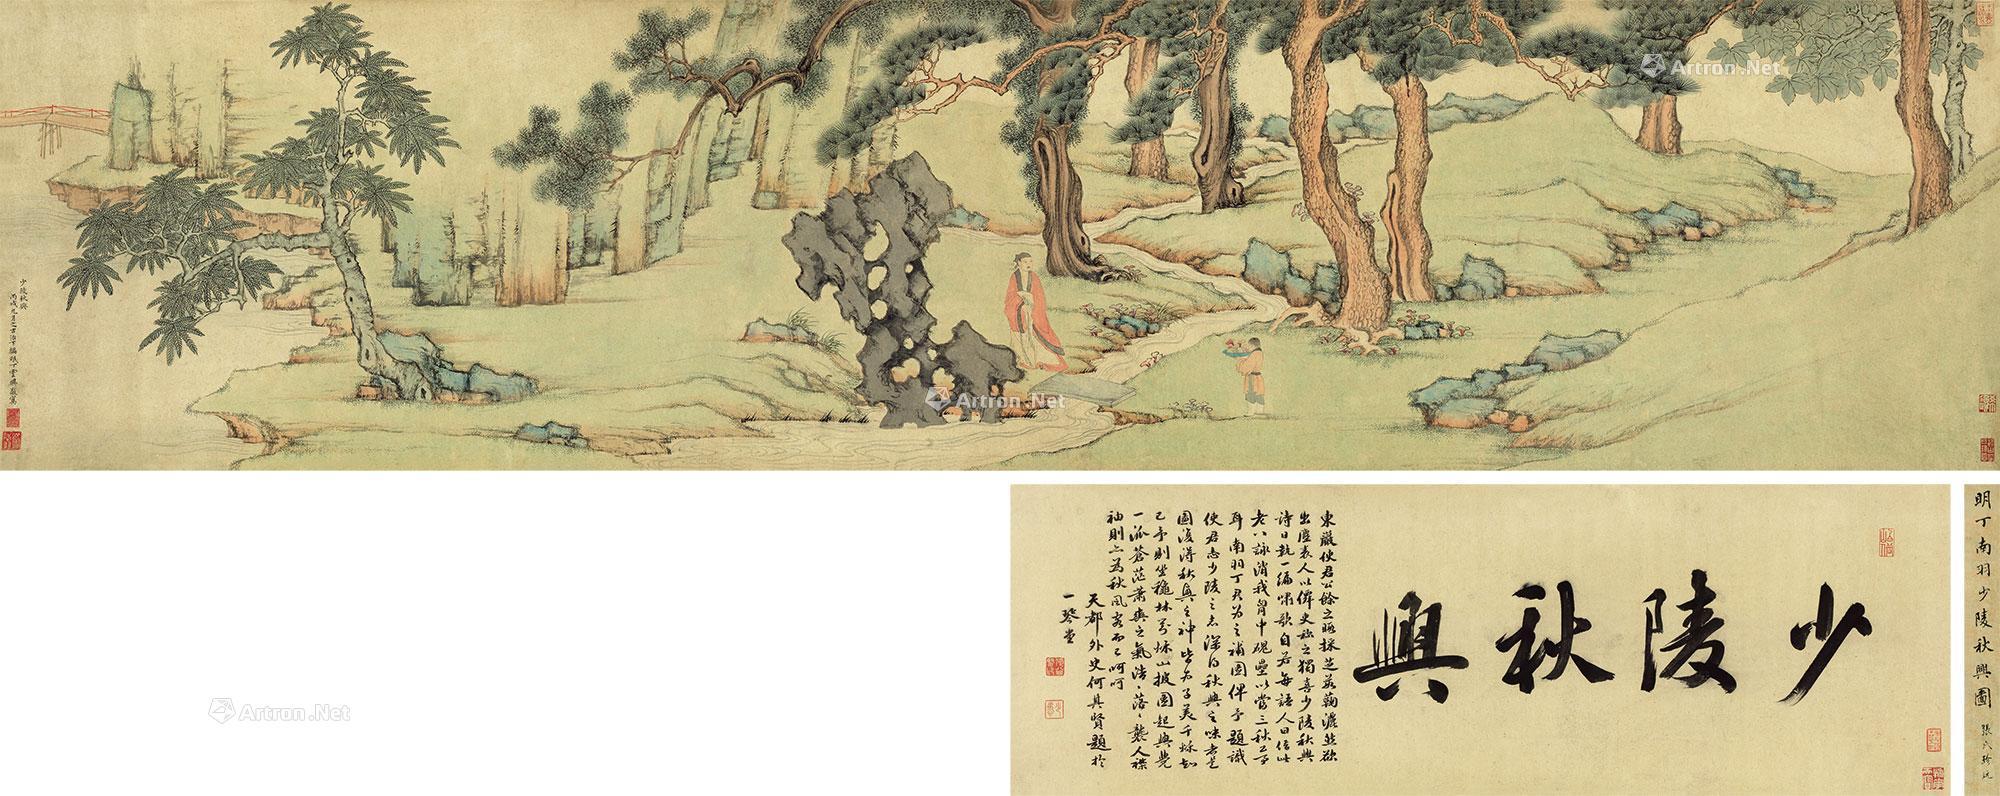 少陵秋興
丙戌九月之吉治下
雲鵬敬寫
明丁南羽少陵秋興圖
少陵秋興
東巖使君公餘之暇採芝蒸菊澹然欲
出塵表人以僊吏稱之獨喜少陵秋興
詩日執一編嘯歌自若每語人曰信此
老八詠消我胷中磈壘以當三秋
耳南羽丁君為之補圖俾予題識
使君志少陵之志深得秋興之味者是
圖復得秋興之神皆為子美千秋知
己予則坐穐林
山披圖起興覺
一派蒼茫蕭爽之氣浩浩落落襲人襟
袖則亦為秋風客而已呵呵
天都外史何其賢題於
一琴堂
Artron.Net
Artron.Net
Artron.Net
Artron.Net